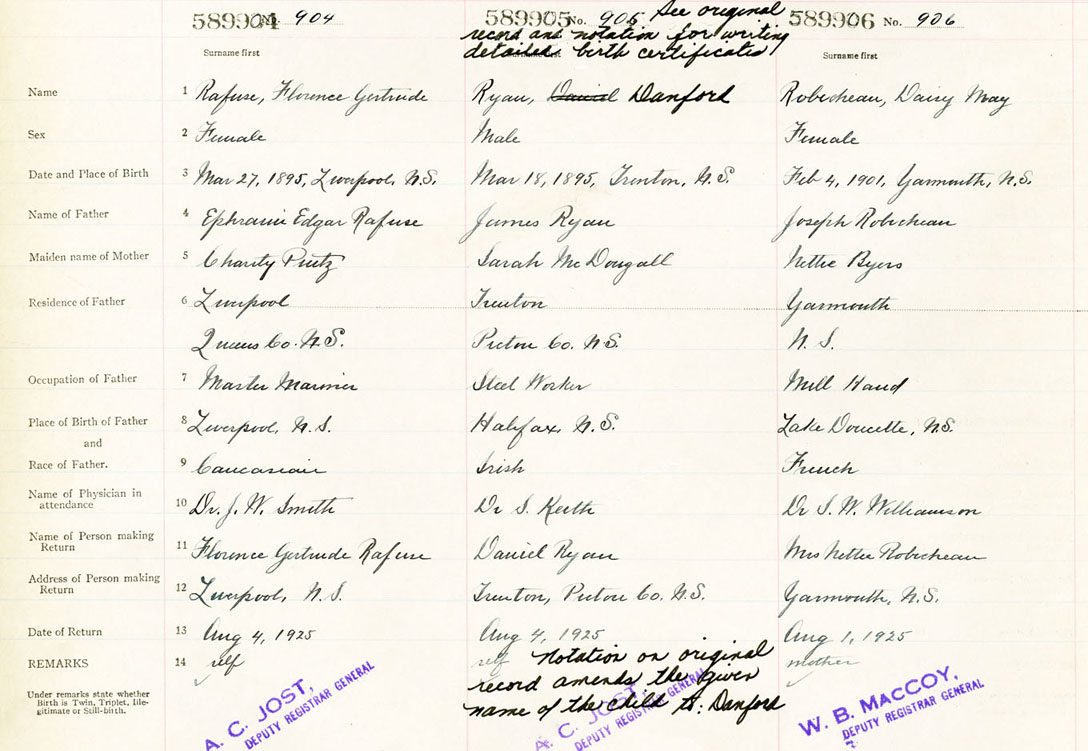 589904 No. 904
589905 No. 905 See original
record and notation for writing
detailed birth certificates
589906 No. 906
Surname first
Surname first
Name 1 Rafuse, Florence Gertrude Ryan, Daniel Danford Robicheau, Daisy May
Sex 2 Female Male Female
Date and Place of Birth 3 Mar 27, 1895, Liverpool, N.S. Mar 18, 1895, Trenton, N.S. Feb 4, 1901, Yarmouth, N.S.
Name of Father 4 Ephraim Edgar Rafuse James Ryan Joseph Robicheau
Maiden name of Mother 5 Charity Sarah McDougall Nettie Byers
Residence of Father 6 Liverpool Trenton Yarmouth
Queens Co. N.S. Pictou Co. N.S. N.S.
Occupation of Father 7 Master Mariner Steel Worker Mill Hand
Place of Birth of Father 8 Liverpool, N.S. Halifax, N.S. Lake Doucette, N.S.
and
Race of Father. 9 Caucasian Irish French
Name of Physician in
attendance 10 Dr. J. W. Smith Dr S. Keith Dr S. W. Williamson
Name of Person making
Return 11 Florence Gertrude Rafuse Daniel Ryan Mrs Nettie Robicheau
Address of Person making
Return 12 Liverpool, N.S. Trenton, Pictou Co. N.S. Yarmouth, N.S.
Date of Return 13 Aug 4, 1925 Aug 4, 1925 Aug 1, 1925
REMARKS 14 self self Notation on original mother
record amends the given
name of the child to: Danford
Under remarks state whether
Birth is Twin, Triplet, Ille-
gitimate or Still-birth.
A. C. JOST,
DEPUTY REGISTRAR GENERAL
A. C. JOST,
DEPUTY REGISTRAR GENERAL
W. B. MacCOY,
DEPUTY REGISTRAR GENERAL